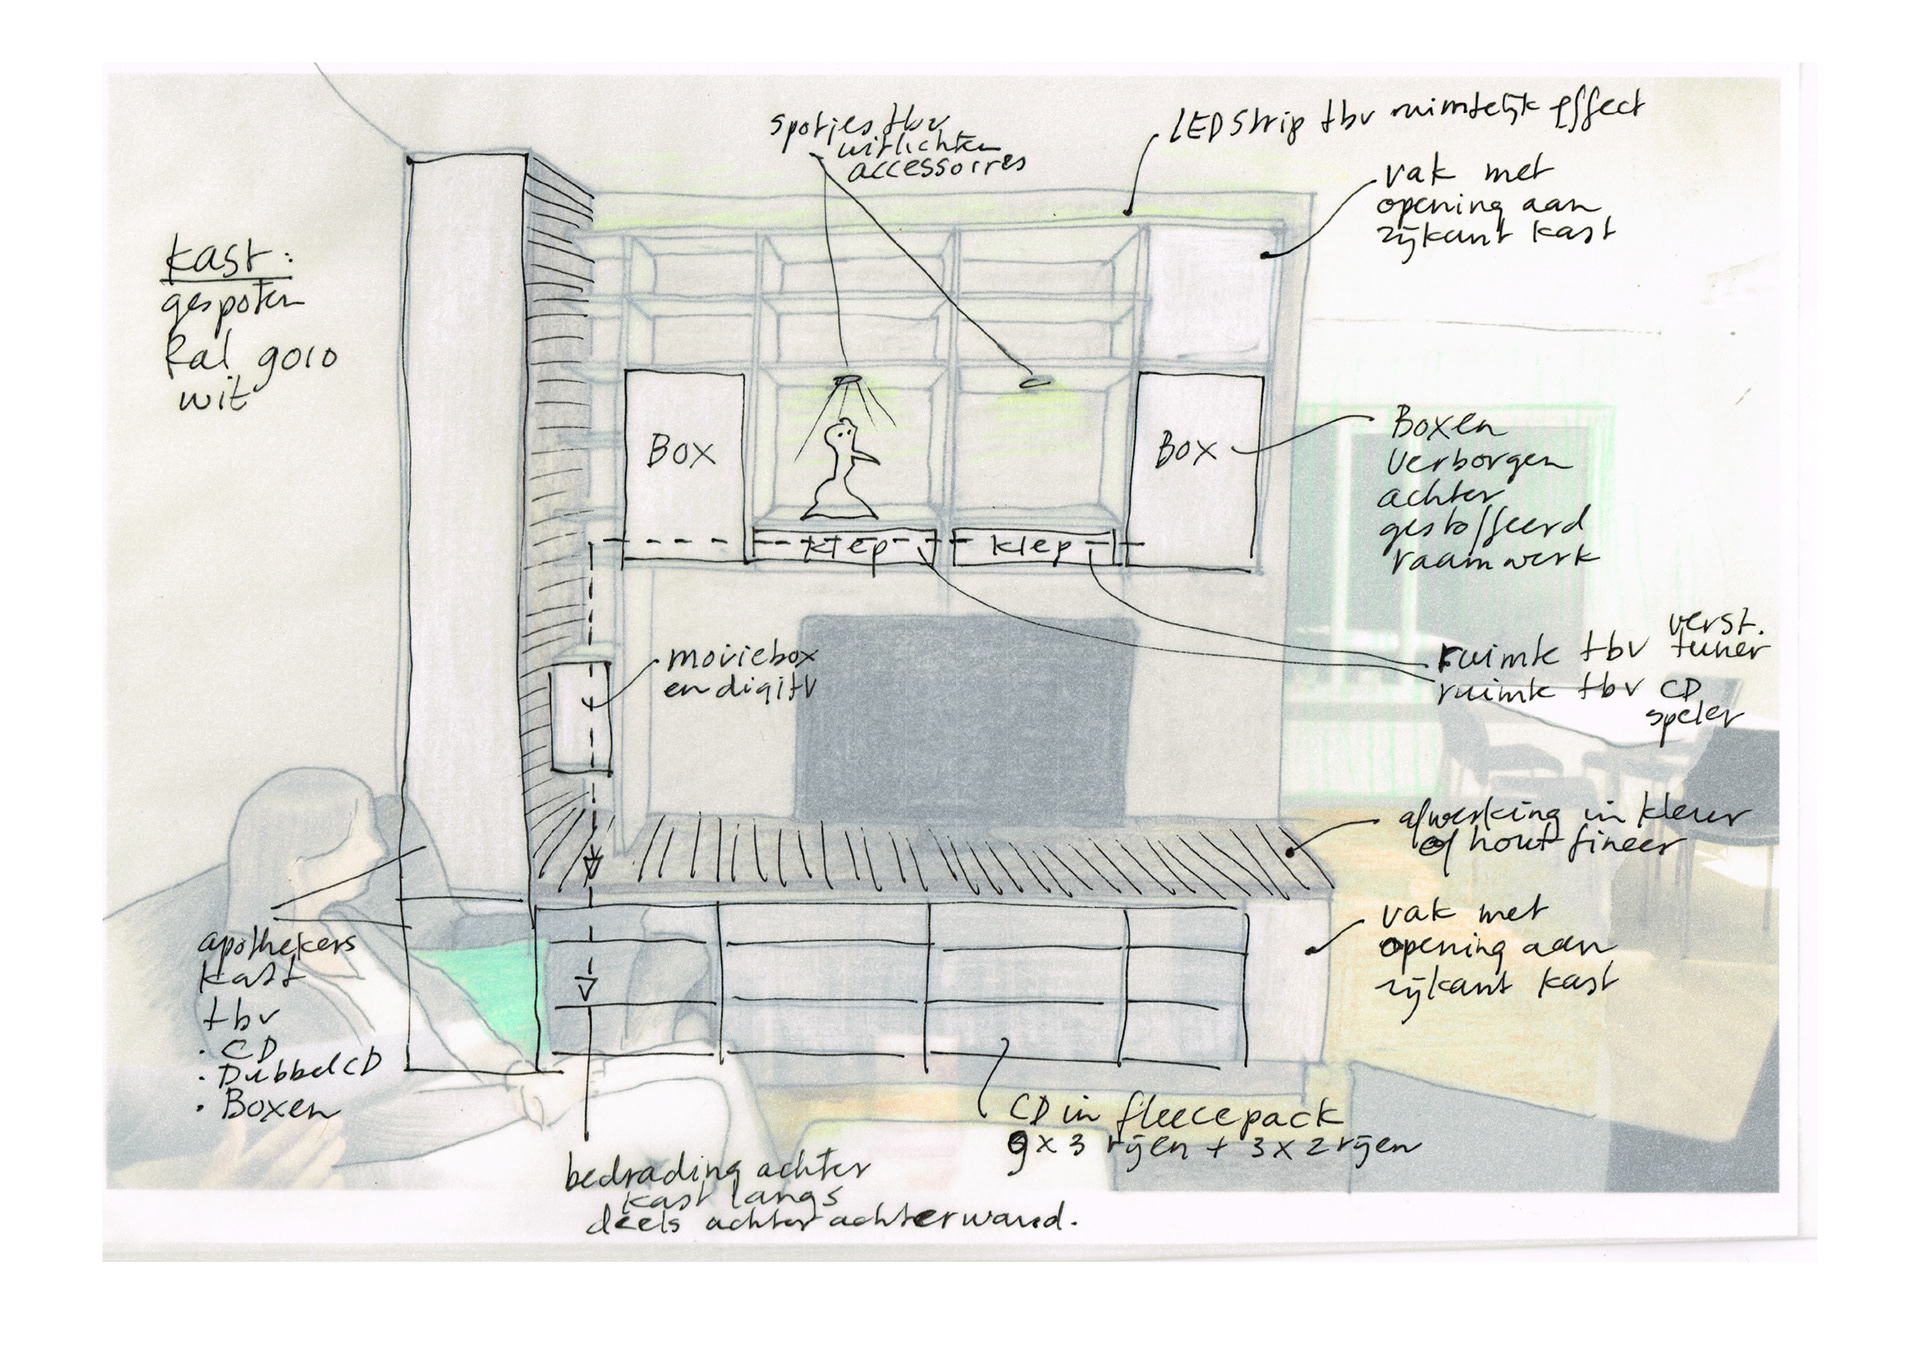 spotjes tbv
uitlichten
accessoires
LED strip tbv ruimtelijk effect
vak met
opening aan
zijkant kast
kast:
gespoten
Ral 9010
wit
BOX
BOX
Boxen
verborgen
achter
gestoffeerd
raamwerk
klep
klep
moviebox
en digitv
ruimte tbv verst.
tuner
ruimte tbv CD
speler
afwerking in kleur
of hout fineer
vak met
opening aan
zijkant kast
apothekers
kast
tbv
· CD
· Dubbel CD
· Boxen
CD in fleecepack
9x3 rijen + 3x2 rijen
bedrading achter
kast langs
deels achter achterwand.